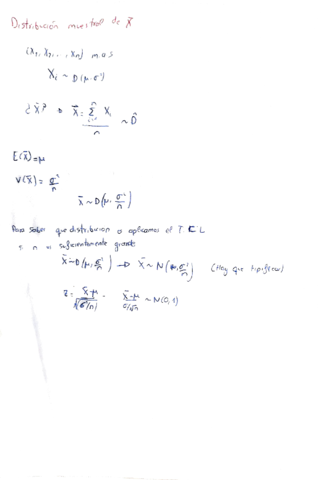 Distribución muestral de X̄
(X₁, X₂, ..., Xn) m a s
Xi ~ D(μ, σ²)
¿ X̄ ? → X̄ = Σ(i=1 → n) Xi / n ~ D̂
E(X̄) = μ
V(X̄) = σ²/n
X̄ ~ D(μ, σ²/n)
Para saber que distribucion a aplicamos el T.C.L
si n es suficientemente grande
X̄ ~ D(μ, σ²/n) → X̄ ~ N(μ, σ²/n) (Hay que tipificar)
z = X̄-μ / √(σ²/n) = X̄-μ / σ/√n ~ N(0, 1)